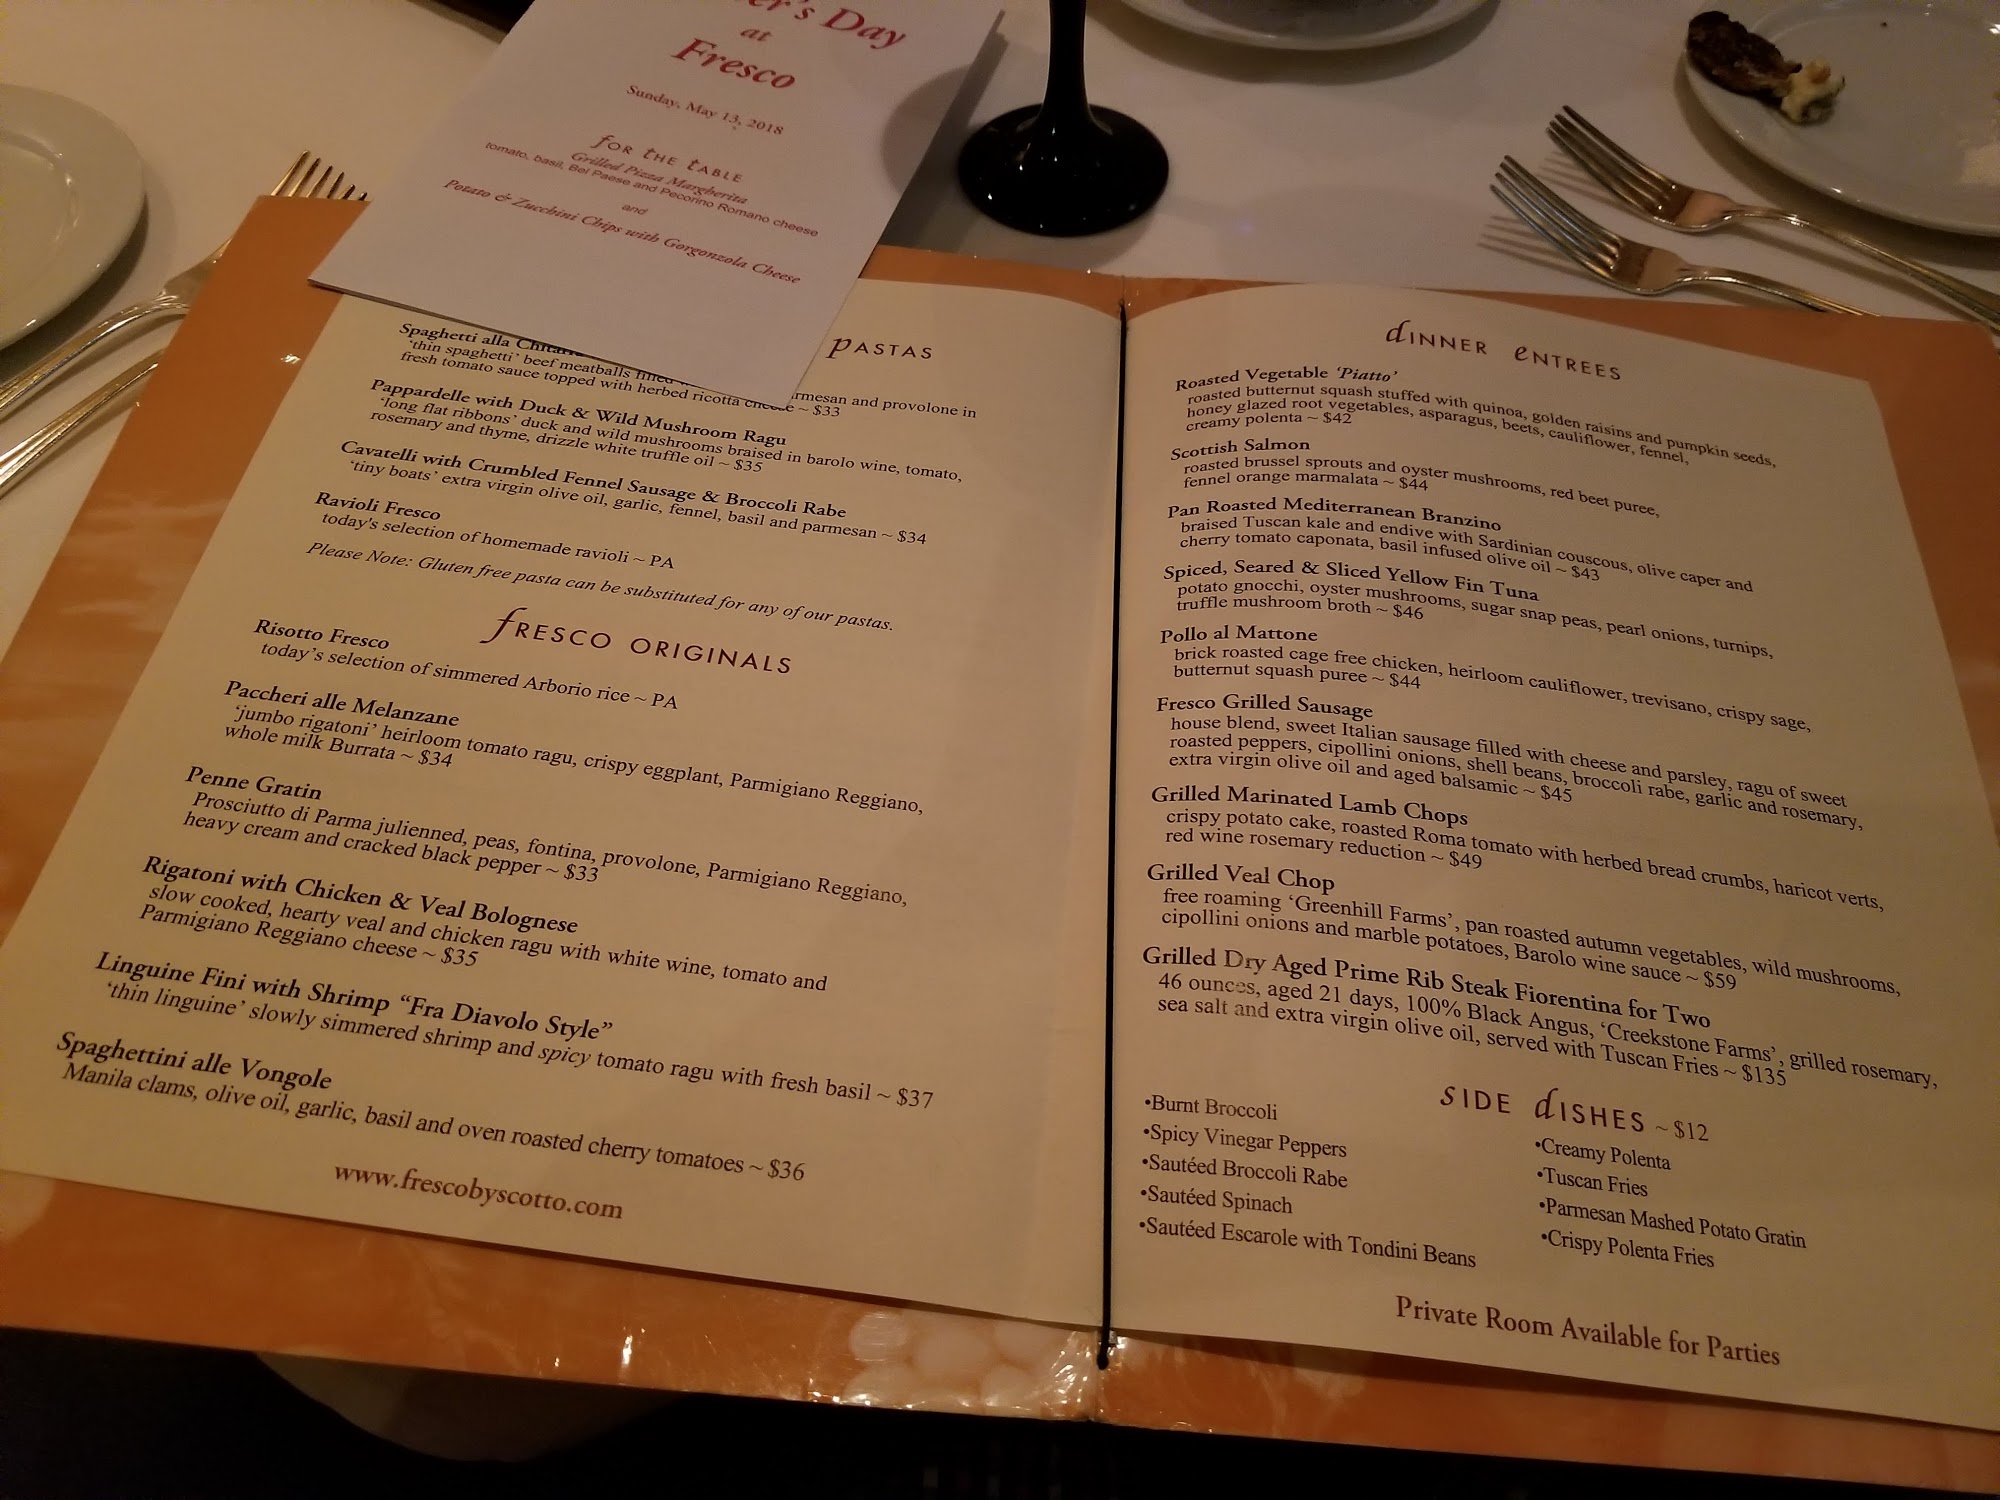 er's Day
at
Fresco
Sunday, May 13, 2018
for the table
Grilled Pizza Margherita
tomato, basil, Bel Paese and Pecorino Romano cheese
and
Potato & Zucchini Chips with Gorgonzola Cheese
PASTAS
Spaghetti alla
'thin spaghetti' beef meatballs filled rmesan and provolone in
fresh tomato sauce topped with herbed ricotta cheese ~ $33
Pappardelle with Duck & Wild Mushroom Ragu
'long flat ribbons' duck and wild mushrooms braised in barolo wine, tomato,
rosemary and thyme, drizzle white truffle oil ~ $35
Cavatelli with Crumbled Fennel Sausage & Broccoli Rabe
'tiny boats' extra virgin olive oil, garlic, fennel, basil and parmesan ~ $34
Ravioli Fresco
today's selection of homemade ravioli ~ PA
Please Note: Gluten free pasta can be substituted for any of our pastas.
fRESCO ORIGINALS
Risotto Fresco
today's selection of simmered Arborio rice ~ PA
Paccheri alle Melanzane
'jumbo rigatoni' heirloom tomato ragu, crispy eggplant, Parmigiano Reggiano,
whole milk Burrata ~ $34
Penne Gratin
Prosciutto di Parma julienned, peas, fontina, provolone, Parmigiano Reggiano,
heavy cream and cracked black pepper ~ $33
Rigatoni with Chicken & Veal Bolognese
slow cooked, hearty veal and chicken ragu with white wine, tomato and
Parmigiano Reggiano cheese ~ $35
Linguine Fini with Shrimp "Fra Diavolo Style"
'thin linguine' slowly simmered shrimp and spicy tomato ragu with fresh basil ~ $37
Spaghettini alle Vongole
Manila clams, olive oil, garlic, basil and oven roasted cherry tomatoes ~ $36
www.frescobyscotto.com
dINNER eNTREES
Roasted Vegetable 'Piatto'
roasted butternut squash stuffed with quinoa, golden raisins and pumpkin seeds,
honey glazed root vegetables, asparagus, beets, cauliflower, fennel,
creamy polenta ~ $42
Scottish Salmon
roasted brussel sprouts and oyster mushrooms, red beet puree,
fennel orange marmalata ~ $44
Pan Roasted Mediterranean Branzino
braised Tuscan kale and endive with Sardinian couscous, olive caper and
cherry tomato caponata, basil infused olive oil ~ $43
Spiced, Seared & Sliced Yellow Fin Tuna
potato gnocchi, oyster mushrooms, sugar snap peas, pearl onions, turnips,
truffle mushroom broth ~ $46
Pollo al Mattone
brick roasted cage free chicken, heirloom cauliflower, trevisano, crispy sage,
butternut squash puree ~ $44
Fresco Grilled Sausage
house blend, sweet Italian sausage filled with cheese and parsley, ragu of sweet
roasted peppers, cipollini onions, shell beans, broccoli rabe, garlic and rosemary,
extra virgin olive oil and aged balsamic ~ $45
Grilled Marinated Lamb Chops
crispy potato cake, roasted Roma tomato with herbed bread crumbs, haricot verts,
red wine rosemary reduction ~ $49
Grilled Veal Chop
free roaming 'Greenhill Farms', pan roasted autumn vegetables, wild mushrooms,
cipollini onions and marble potatoes, Barolo wine sauce ~ $59
Grilled Dry Aged Prime Rib Steak Fiorentina for Two
46 ounces, aged 21 days, 100% Black Angus, 'Creekstone Farms', grilled rosemary,
sea salt and extra virgin olive oil, served with Tuscan Fries ~ $135
SIDE dISHES ~ $12
•Burnt Broccoli
•Spicy Vinegar Peppers
•Sautéed Broccoli Rabe
•Sautéed Spinach
•Sautéed Escarole with Tondini Beans
•Creamy Polenta
•Tuscan Fries
•Parmesan Mashed Potato Gratin
•Crispy Polenta Fries
Private Room Available for Parties